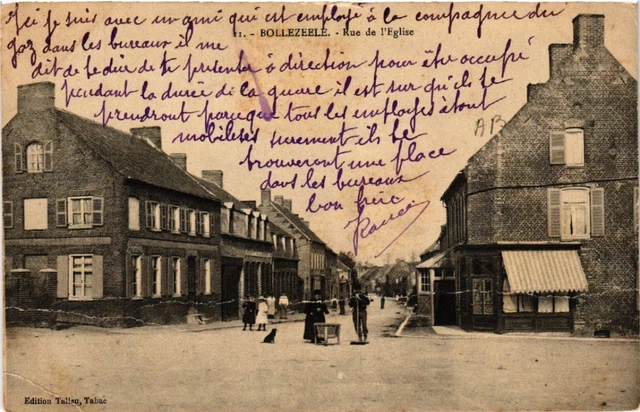 Ici je suis avec un ami qui est employé à la compagnie du
11. - BOLLEZEELE. - Rue de l'Eglise
gaz dans les bureaux il me
dit de te dire de te presenter à direction pour être occupé
pendant la durée de la guerre il est sur qu'ils te
prendront parceque tous les employés étant
mobilisés surement ils te
trouveront une place
dans les bureaux
bon baisé
AB
Edition Talleu, Tabac